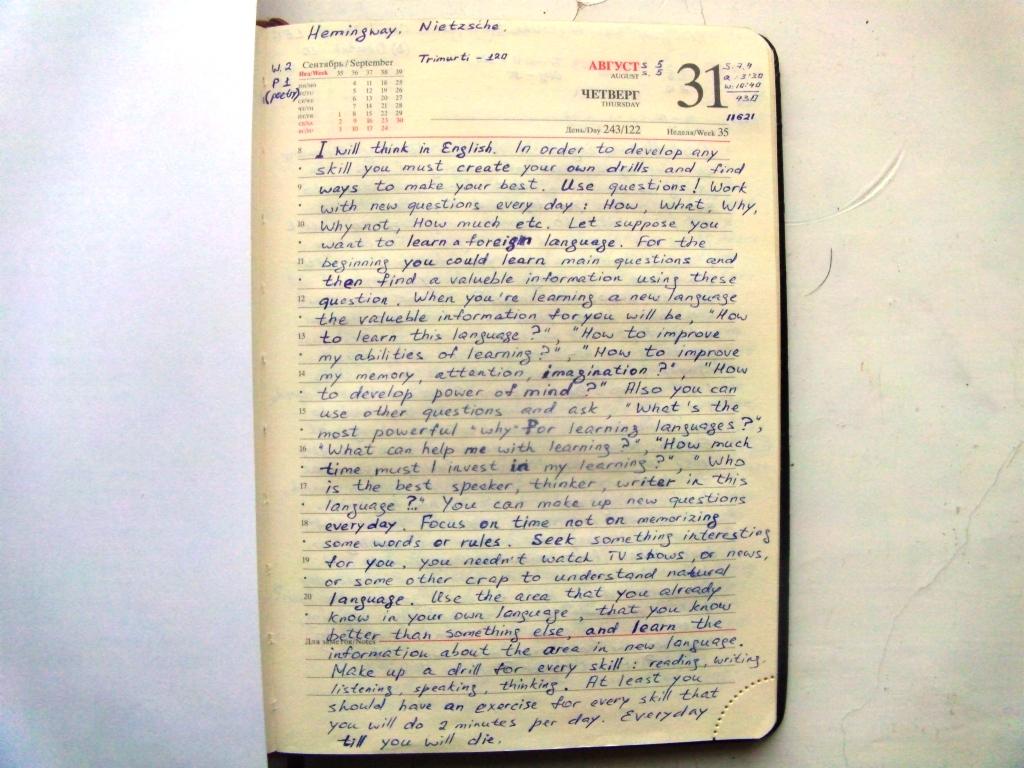 Hemingway. Nietzsche.
Trimurti - 120
W. 2
P 1
(poetry)
Сентябрь / September
Нед/Week 35 36 37 38 39
ПН/MO 4 11 18 25
ВТ/TU 5 12 19 26
СР/WE 6 13 20 27
ЧТ/TH 7 14 21 28
ПТ/FR 1 8 15 22 29
СБ/SA 2 9 16 23 30
ВС/SU 3 10 17 24
АВГУСТ
AUGUST
s 5
s. 5
ЧЕТВЕРГ
THURSDAY
31
S: 7.4
a: 3:30
w: 10:40
430
11621
День/Day 243/122 Неделя/Week 35
8 I will think in English. In order to develop any
skill you must create your own drills and find
9 ways to make your best. Use questions! Work
with new questions every day: How, What, Why,
10 Why not, How much etc. Let suppose you
want to learn a foreign language. For the
11 beginning you could learn main questions and
then find a valueble information using these
12 question. When you're learning a new language
the valueble information for you will be, "How
13 to learn this language?", "How to improve
my abilities of learning?", "How to improve
14 my memory, attention, imagination?", "How
to develop power of mind?" Also you can
15 use other questions and ask, "What's the
most powerful "why" For learning languages?",
16 "What can help me with learning?", "How much
time must I invest in my learning?", "Who
17 is the best speeker, thinker, writer in this
language?" You can make up new questions
18 everyday. Focus on time not on memorizing
some words or rules. Seek something interesting
19 for you, you needn't watch TV shows, or news,
or some other crap to understand natural
20 language. Use the area that you already
know in your own language, that you know
Для заметок/Notes better than something else, and learn the
information about the area in new language.
Make up a drill for every skill: reading, writing,
listening, speaking, thinking. At least you
should have an exercise for every skill that
you will do 2 minutes per day. Everyday
till you will die.